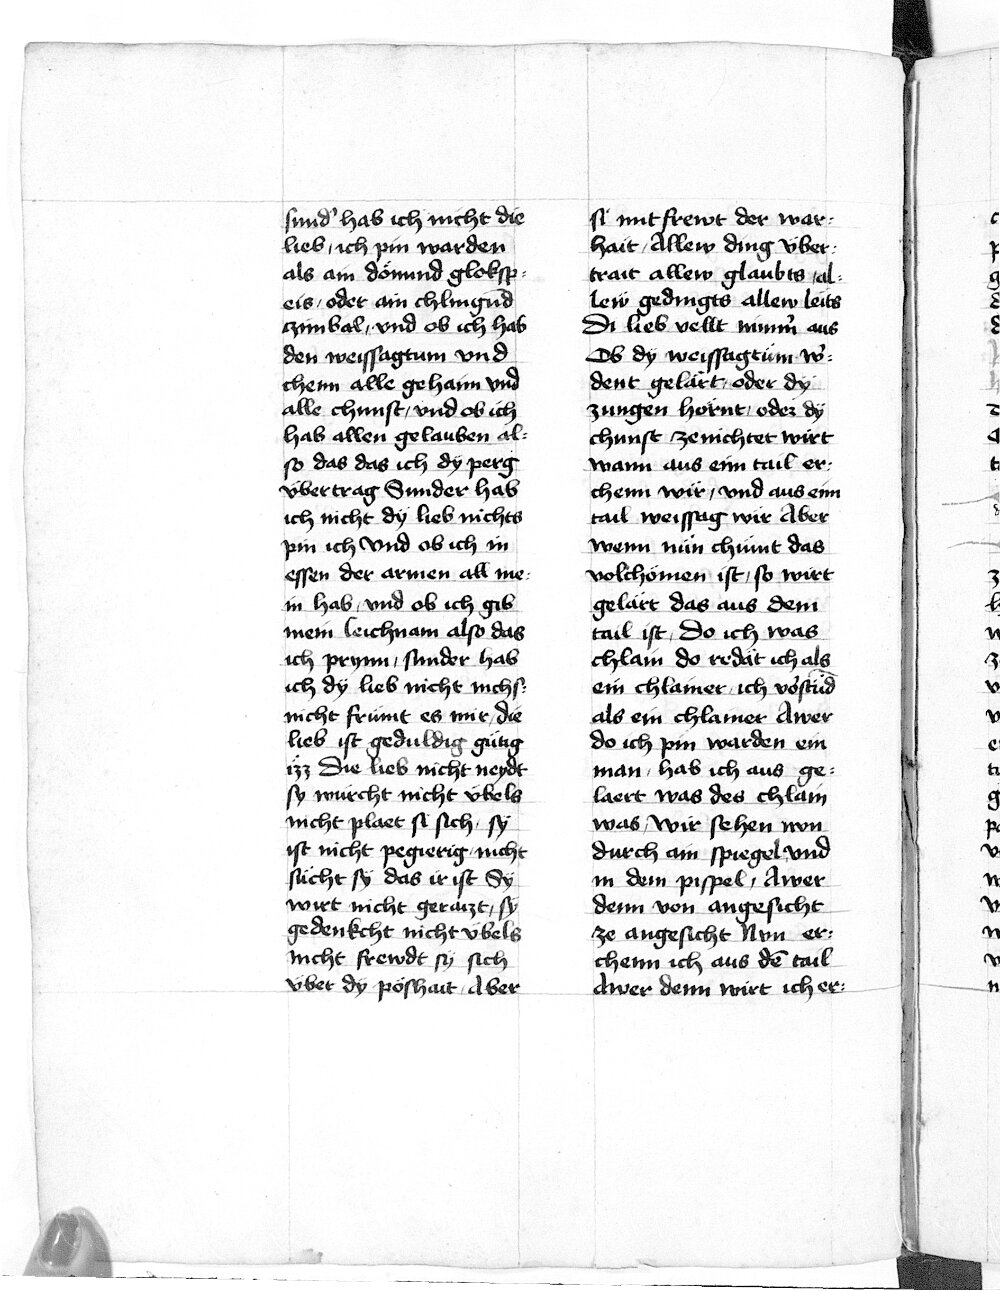 sund' hab ich nicht die
lieb / ich pin warden
als am dönund gloksp:
eis / oder ain chlingund
zimbal / vnd ob ich hab
den weissagtum vnd
chenn alle gehaim vnd
alle chunst / vnd ob ich
hab allen gelauben al:
so das das ich dÿ perg
vbertrag Sunder hab
ich nicht dÿ lieb nichts
pin ich Vnd ob ich in
essen der armen all me:
in hab / vnd ob ich gib
mein leichnam also das
ich prynn / sunder hab
ich dÿ lieb nicht nichs:
nicht frümt es mir / die
lieb ist geduldig gütig
izz Die lieb nicht neydt
sy würcht nicht vbels
nicht plaet si sich / sÿ
ist nicht pegierig / nicht
sücht sÿ das ir ist Sÿ
wirt nicht geraizt / sÿ
gedenkcht nicht vbels
nicht frewdt sÿ sich
vber dÿ pöshait / Aber
si mit frewt der war:
hait / Allew ding vber:
trait allew glaubts / al:
lew gedingts allew leits
Di lieb vellt nimm' aus
Ob dÿ weissagtüm w':
dent gelärt / oder dÿ
zungen hörnt / oder dÿ
chunst zenichtet wirt
wann aus eim tail er:
chenn wir / vnd aus eim
tail weissag wir Aber
wenn nün chümt das
volchömen ist / so wirt
gelärt das aus dem
tail ist / Do ich was
chlain do redät ich als
ein chlainer / ich v'stūd
als ein chlainer Awer
do ich pin warden ein
man / hab ich aus ge:
laert was des chlain
was / Wir sehen nvn
durch ain spiegel vnd
in dem pispel / Awer
denn von angesicht
ze angesicht Nvn er:
chenn ich aus dē tail
Awer denn wirt ich er: